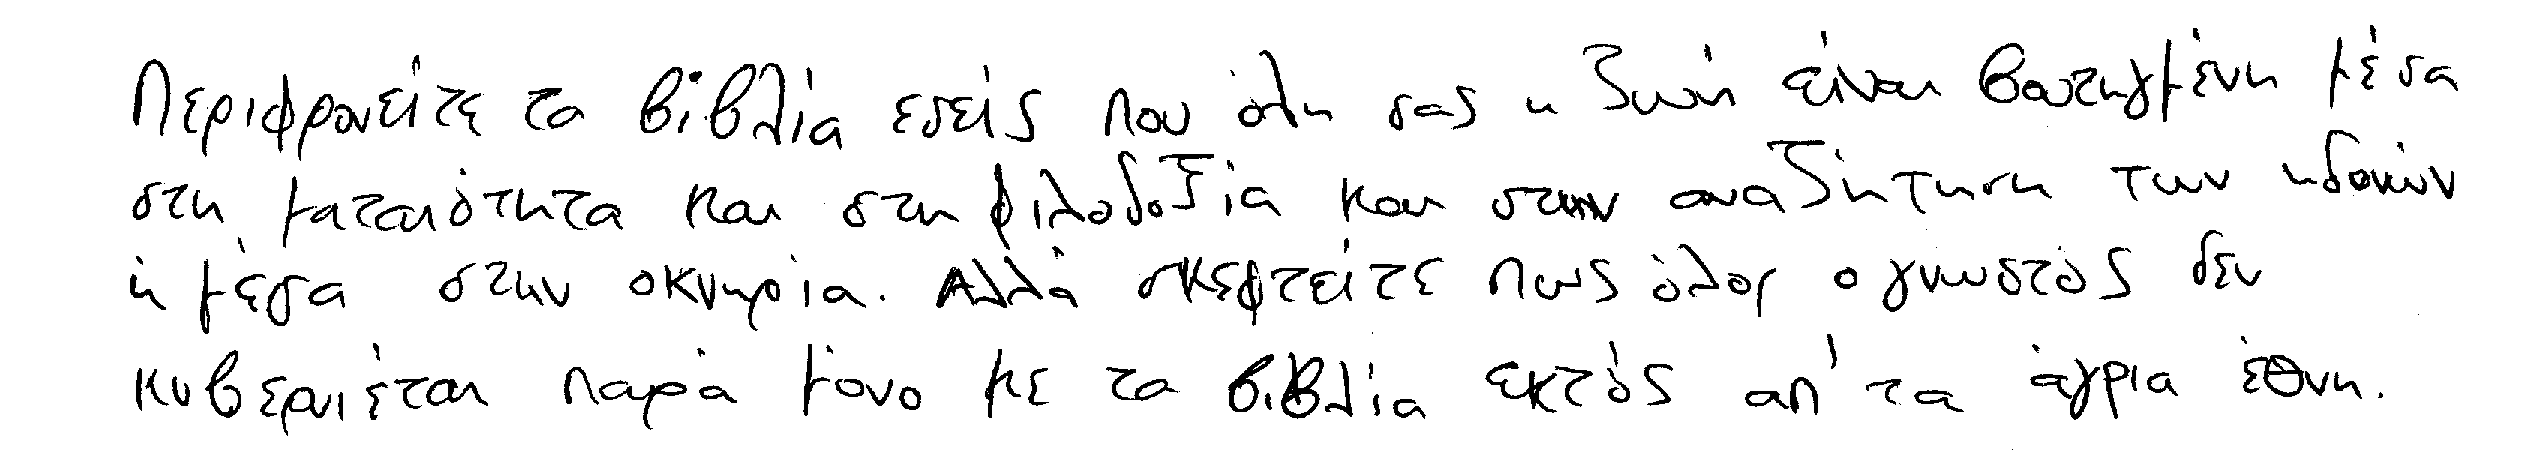 Περιφρονείτε τα βιβλία εσείς που όλη σας η ζωή είναι βουτηγμένη μέσα
στη ματαιότητα και στη φιλοδοξία και στην αναζήτηση των ηδονών
ή μέσα στην οκνηρία. Αλλά σκεφτείτε πως όλος ο γνωστός δεν
κυβερνιέται παρά μόνο με τα βιβλία εκτός απ' τα άγρια έθνη.